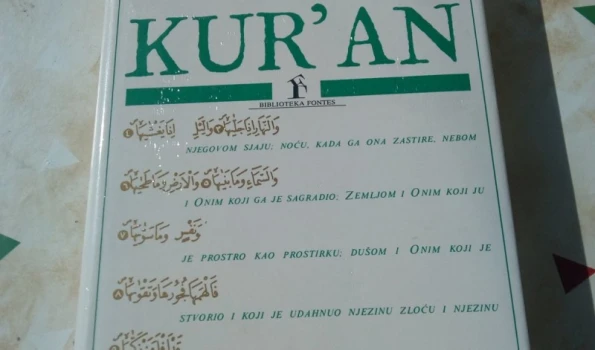 KUR'AN
BIBLIOTEKA FONTES
وَالنَّهَارِ إِذَا جَلَّىٰهَا ٣ وَالَّيْلِ إِذَا يَغْشَىٰهَا ٤
NJEGOVOM SJAJU; NOĆU, KADA GA ONA ZASTIRE, NEBOM
وَالسَّمَاءِ وَمَا بَنَىٰهَا ٥ وَالْأَرْضِ وَمَا طَحَىٰهَا ٦
I ONIM KOJI GA JE SAGRADIO; ZEMLJOM I ONIM KOJI JU
وَنَفْسٍ وَمَا سَوَّىٰهَا ٧
JE PROSTRO KAO PROSTIRKU; DUŠOM I ONIM KOJI JE
فَأَلْهَمَهَا فُجُورَهَا وَتَقْوَىٰهَا ٨
STVORIO I KOJI JE UDAHNUO NJEZINU ZLOĆU I NJEZINU